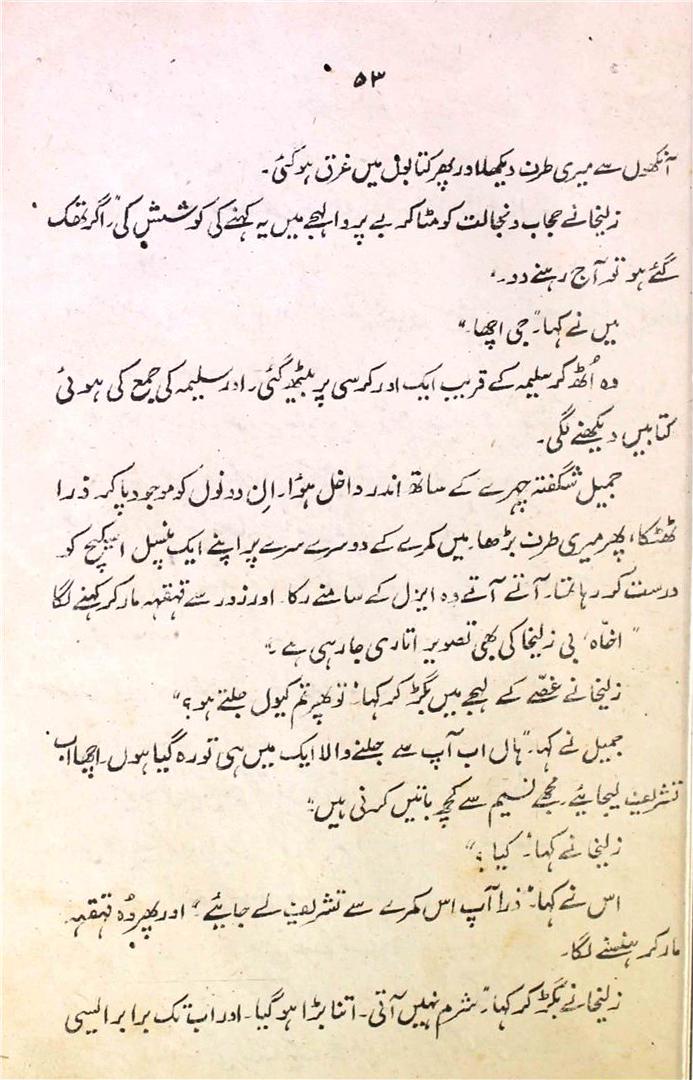 ۵۳
آنکھوں سے میری طرف دیکھا اور پھر کتابوں میں غرق ہو گئی۔
زلیخا نے حجاب و خجالت کو مٹا کر بے پروا لہجے میں یہ کہنے کی کوشش کی "اگر تھک
گئے ہو تو آج رہنے دو۔"
میں نے کہا۔ "جی اچھا۔"
وہ اُٹھ کر سلیمہ کے قریب ایک اور کرسی پر بیٹھ گئی۔ اور سلیمہ کی جمع کی ہوئی
کتابیں دیکھنے لگی۔
جمیل شگفتہ چہرے کے ساتھ اندر داخل ہوا۔ اِن دونوں کو موجود پا کر ذرا
ٹھٹکا، پھر میری طرف بڑھا۔ میں کمرے کے دوسرے سرے پر اپنے ایک پنسل اسکیچ کو
درست کر رہا تھا۔ آتے آتے وہ ایزل کے سامنے رکا۔ اور زور سے قہقہہ مار کر کہنے لگا
"اخّاہ، بی زلیخا کی بھی تصویر اتاری جا رہی ہے۔"
زلیخا نے غصّے کے لہجے میں بگڑ کر کہا۔ "تو پھر تم کیوں جلتے ہو؟"
جمیل نے کہا۔ "ہاں اب آپ سے جلنے والا ایک میں ہی تو رہ گیا ہوں۔ اچھا اب
تشریف لیجایئے۔ مجھے نسیم سے کچھ باتیں کرنی ہیں۔"
زلیخا نے کہا۔ "کیا؟"
اس نے کہا۔ "ذرا آپ اس کمرے سے تشریف لے جایئے۔" اور پھر وُہ قہقہہ
مار کر ہنسنے لگا۔
زلیخا نے بگڑ کر کہا۔ "شرم نہیں آتی۔ اتنا بڑا ہو گیا۔ اور اب تک برابر ایسی